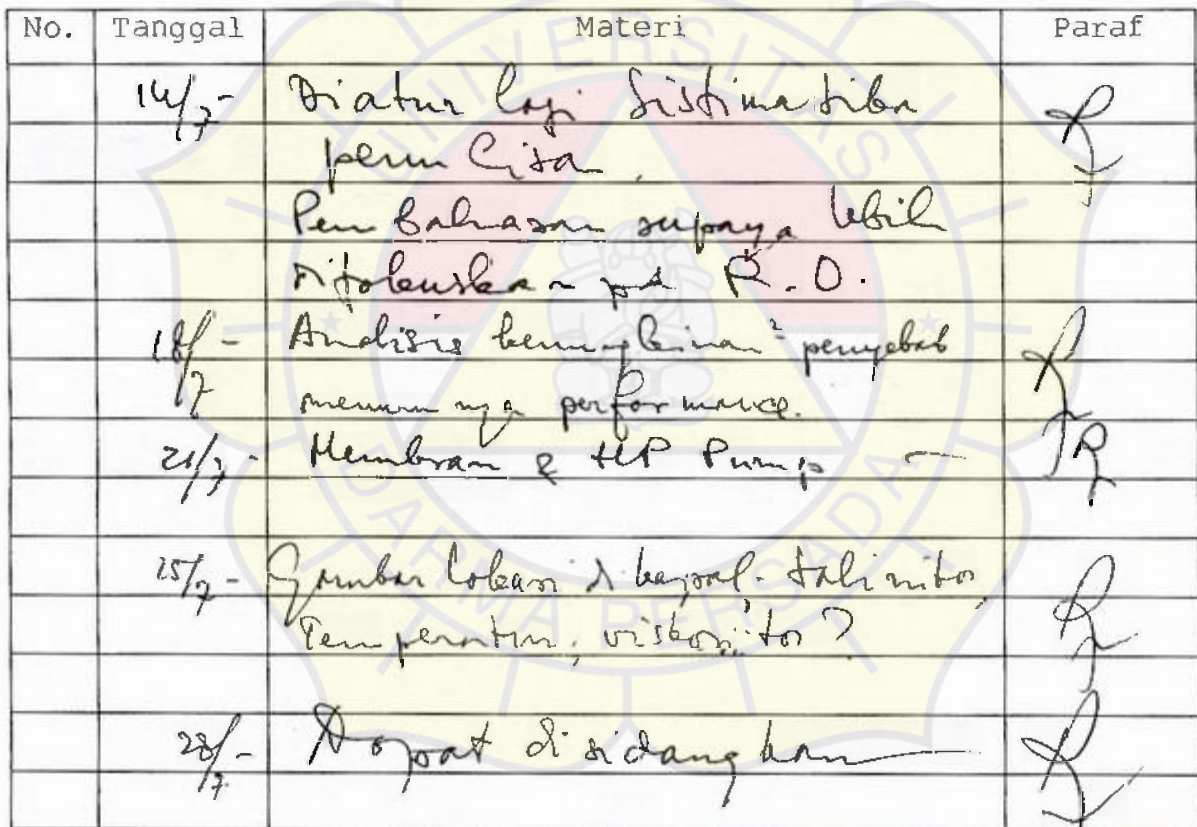 No. Tanggal Materi Paraf
14/7- Diatur lagi Sistimatika
penulisan,
Pembahasan supaya lebih
difokuskan pd R.O.
18/7 - Analisis kemungkinan² penyebab
menurunnya performance.
21/7 - Membran & HP Pump -
25/7 - Gambar lokasi di kapal - salinitas,
Temperatur, viskositas?
28/7 - Dapat disidangkan
UNIVERSITAS
DARMA PERSADA